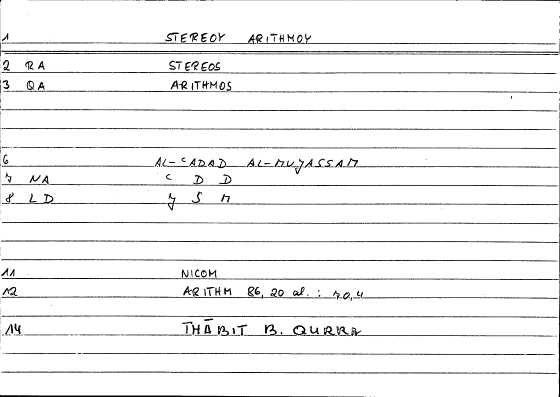 1 STEREOY ARITHMOY
2 RA STEREOS
3 QA ARITHMOS
6 AL-ʿADAD AL-MUJASSAM
7 NA ʿ D D
8 LD J S M
11 NICOM
12 ARITHM 86, 20 al. : 70,4
14 THĀBIT B. QURRA